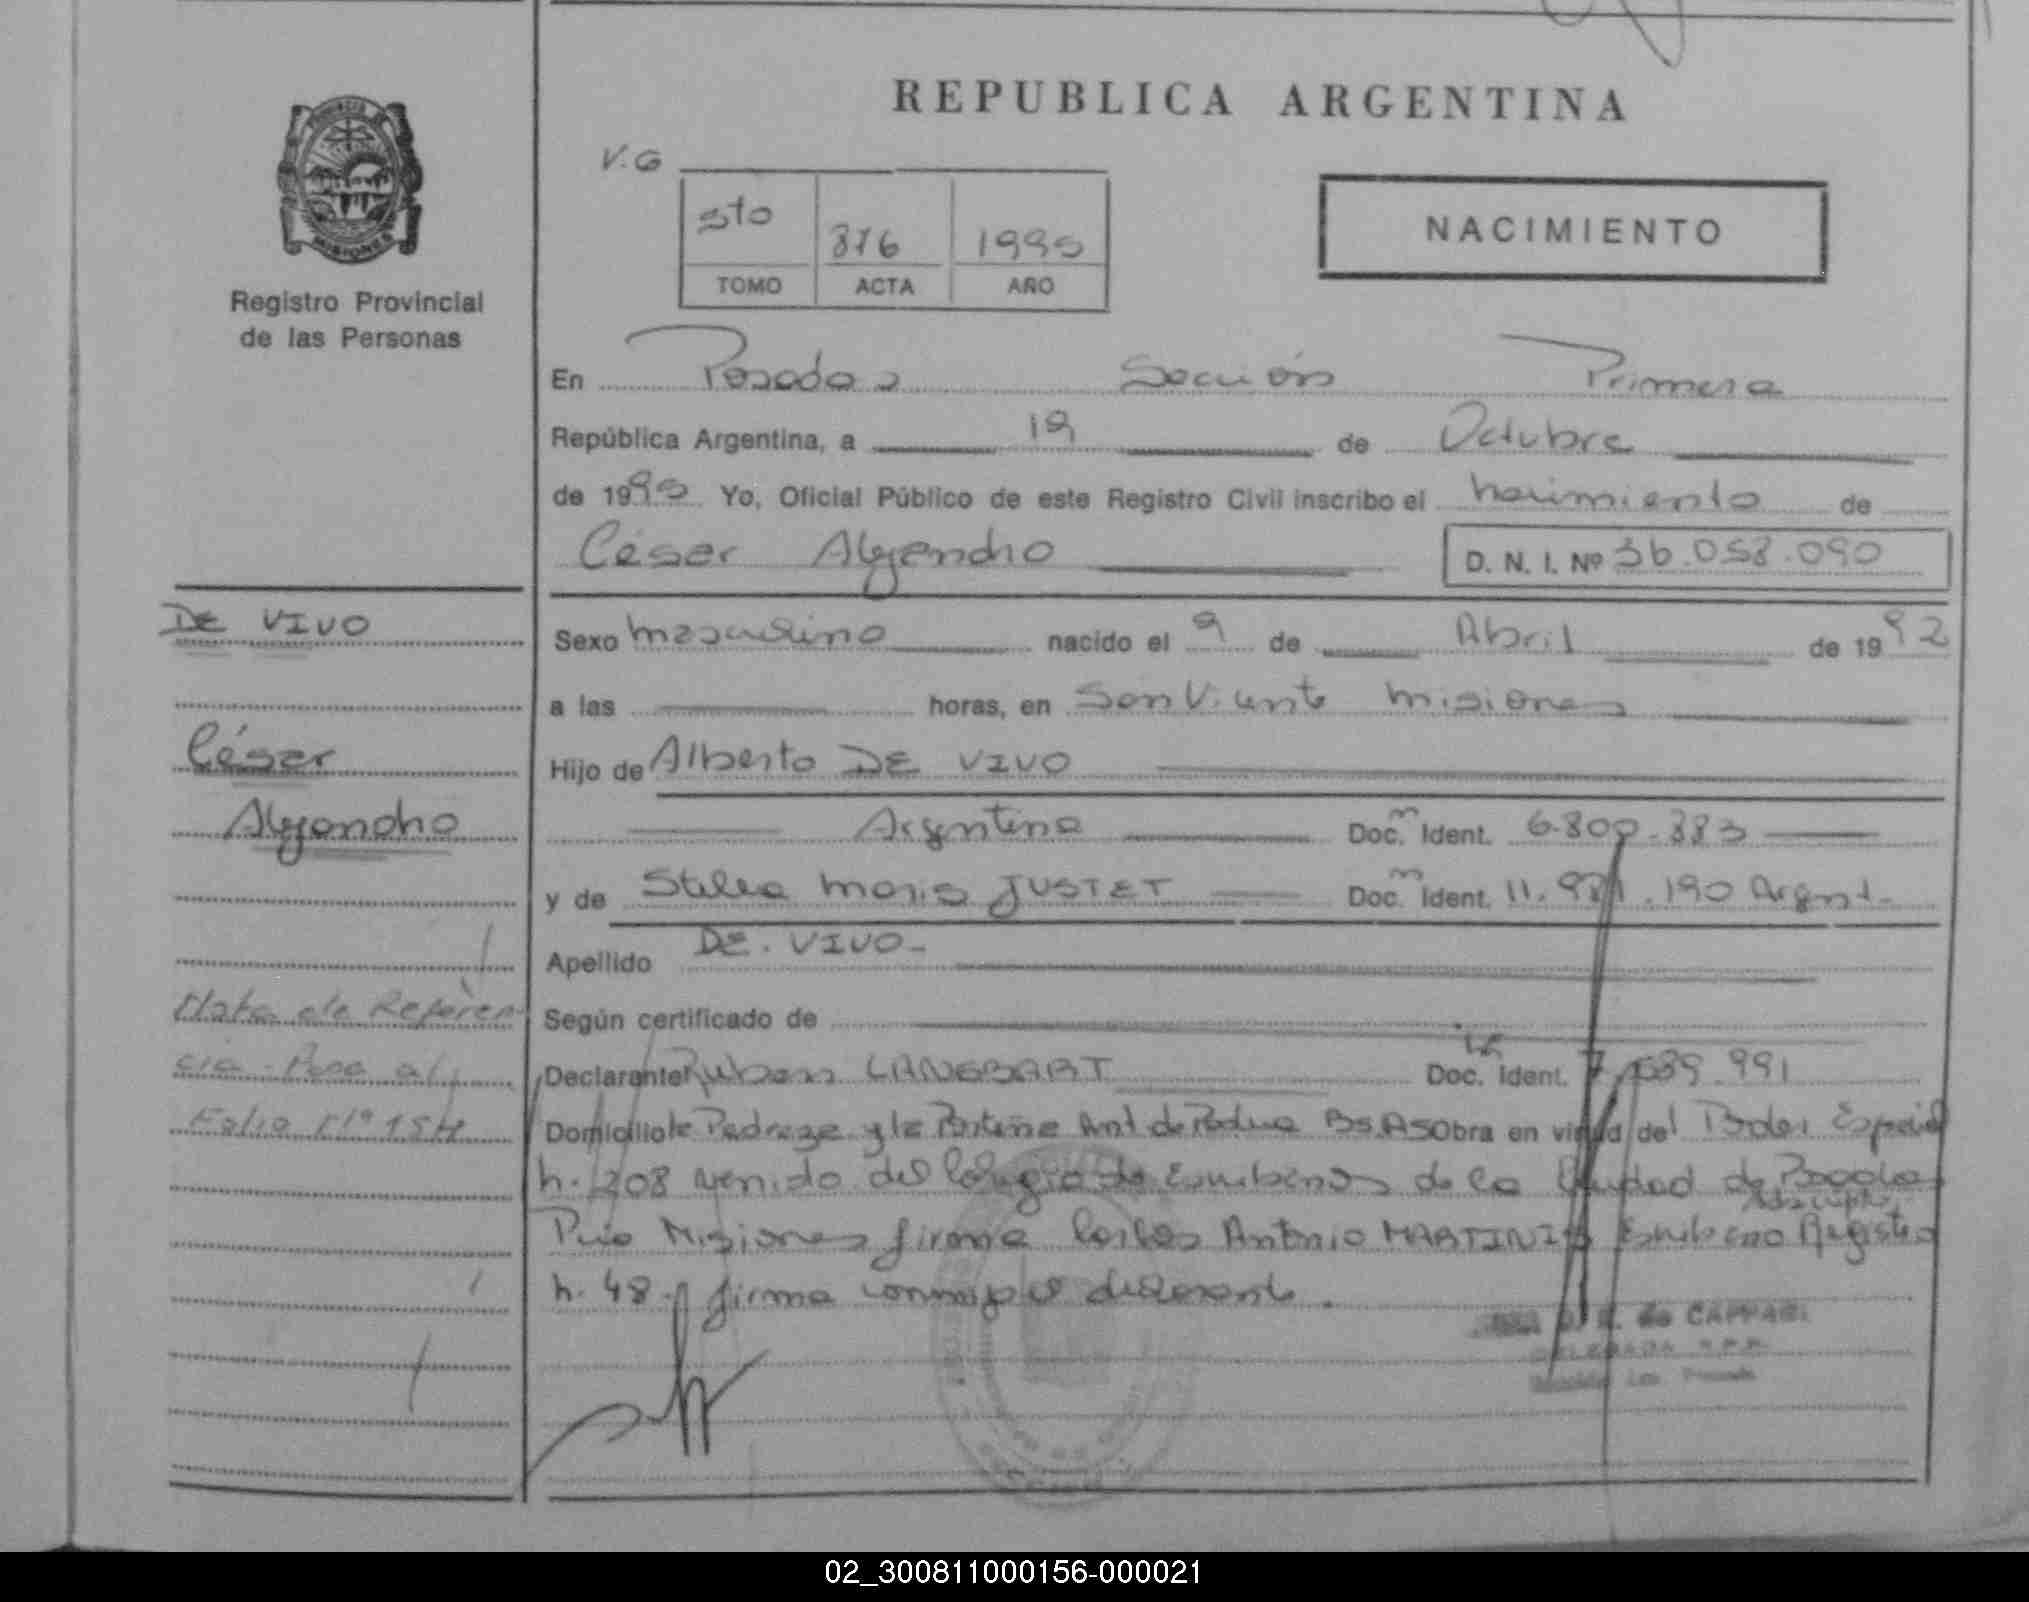 REPUBLICA ARGENTINA
V.G
5to 876 1995
TOMO ACTA AÑO
NACIMIENTO
PROVINCIA DE
MISIONES
Registro Provincial
de las Personas
En Posadas Sección Primera
República Argentina, a 19 de Octubre
de 1995 Yo, Oficial Público de este Registro Civil inscribo el nacimiento de
César Alejandro D. N. I. Nº 36.058.090
Sexo masculino nacido el 9 de Abril de 1992
a las horas, en San Vicente Misiones
Hijo de Alberto DE VIVO
Argentino Doc. m Ident. 6.800.383
y de Stella Maris JUSTET Doc. m Ident. 11.981.190 Argent.
Apellido DE. VIVO-
Según certificado de
Declarante Ruben Doc. Ident. 7.689.991
Domicilio Pedraza y la Porteña Ant de Padua Bs.As Obra en virtud del Poder Especial
n. 208 venido del Colegio de Escribanos de la Ciudad de Posadas
Pcia Misiones firma Carlos Antonio MARTINIS Escribano Adscripto Registro
n. 48. firma conmigo el declarante.
de CAPPARI
DELEGADA R.P.P.
DE VIVO
César
Alejandro
Nota de Referen-
cia - Pasa al
Folio Nº 154
02_300811000156-000021